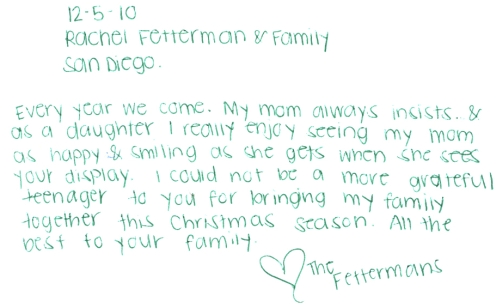 12-5-10
Rachel Fetterman & Family
San Diego.
Every year we come. My mom always insists. &
as a daughter I really enjoy seeing my mom
as happy & smiling as she gets when she sees
your display. I could not be a more grateful
teenager to you for bringing my family
together this Christmas season. All the
best to your family.
The
Fettermans